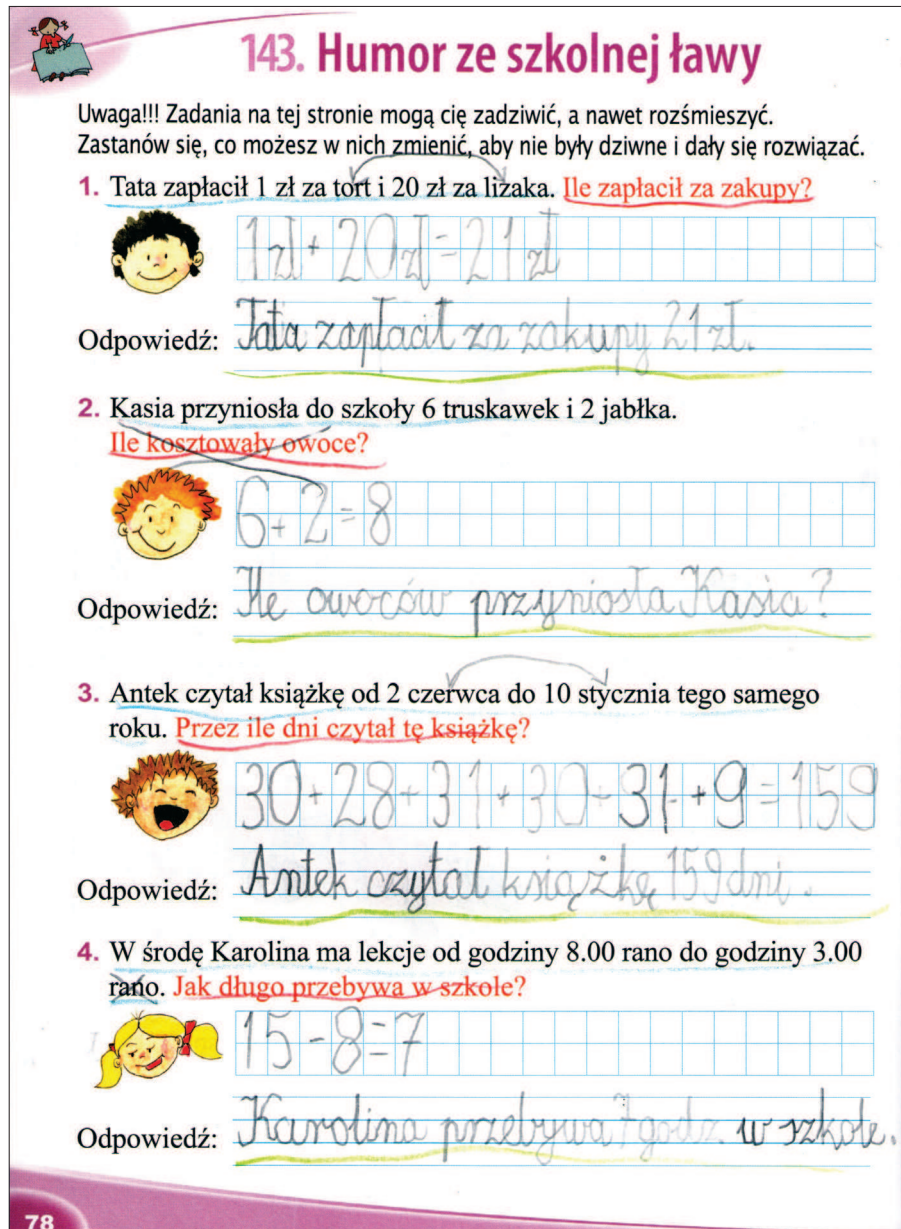 143. Humor ze szkolnej ławy
Uwaga!!! Zadania na tej stronie mogą cię zadziwić, a nawet rozśmieszyć.
Zastanów się, co możesz w nich zmienić, aby nie były dziwne i dały się rozwiązać.
1. Tata zapłacił 1 zł za tort i 20 zł za lizaka. Ile zapłacił za zakupy?
1 zł + 20 zł = 21 zł
Odpowiedź: Tata zapłacił za zakupy 21 zł.
2. Kasia przyniosła do szkoły 6 truskawek i 2 jabłka.
Ile kosztowały owoce?
6 + 2 = 8
Odpowiedź: Ile owoców przyniosła Kasia?
3. Antek czytał książkę od 2 czerwca do 10 stycznia tego samego
roku. Przez ile dni czytał tę książkę?
30 + 28 + 31 + 30 + 31 + 9 = 159
Odpowiedź: Antek czytał książkę 159 dni.
4. W środę Karolina ma lekcje od godziny 8.00 rano do godziny 3.00
rano. Jak długo przebywa w szkole?
15 - 8 = 7
Odpowiedź: Karolina przebywa 7 godz w szkole.
78